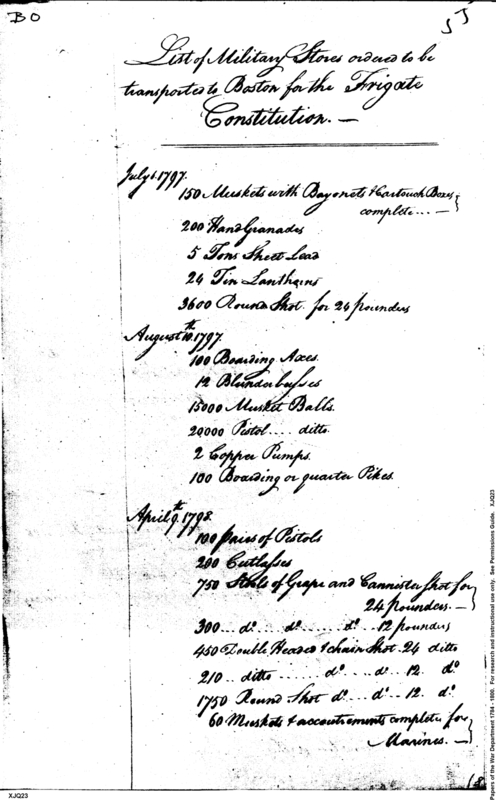 BO
JJ
List of Military Stores ordered to be
transported to Boston for the Frigate
Constitution. —
July 1. 1797.
150 Muskets with Bayonets & Cartouch Boxes
complete... —
200 Hand Granades
5 Tons Sheet Lead
24 Tin Lanthorns
3600 Round Shot for 24 pounders
August 10th. 1797.
100 Boarding Axes.
12 Blunderbusses
15000 Musket Balls.
20,000 Pistol.... ditto.
2 Copper Pumps.
100 Boarding or quarter Pikes.
April 9th. 1798.
100 pairs of Pistols
200 Cutlasses
750 Stools of Grape and Cannester Shot for
24 pounders. —
300... do...... do...... do... 12 pounders
450 Double Headed & chain Shot. 24 ditto
210.. ditto....... do... do.. 12. do
1750 Round Shot do... do.. 12. do
60 Muskets & accoutrements complete for
Marines. —
18
XJQ23
Papers of the War Department 1784 - 1800. For research and instructional use only. See Permissions Guide. XJQ23